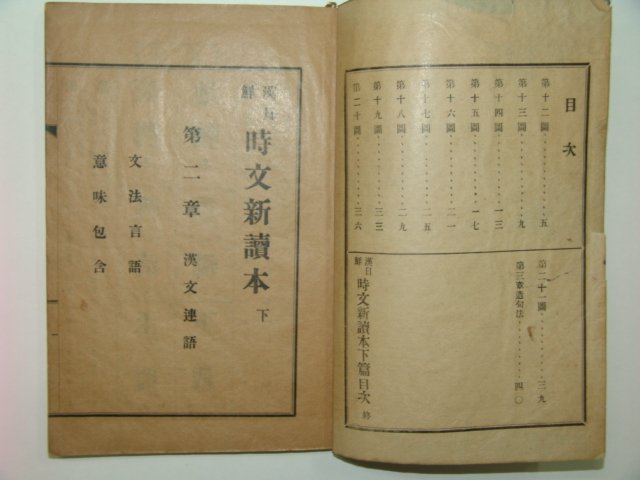 目次
第十二圖‥‥‥‥五
第十三圖‥‥‥‥九
第十四圖‥‥‥‥一三
第十五圖‥‥‥‥一七
第十六圖‥‥‥‥二一
第十七圖‥‥‥‥二五
第十八圖‥‥‥‥二九
第十九圖‥‥‥‥三三
第二十圖‥‥‥‥三六
第二十一圖‥‥‥‥三九
第三章造句法‥‥‥‥四〇
漢日鮮時文新讀本下篇目次 終
漢日鮮 時文新讀本 下
第二章 漢文連語
文法言語
意味包含